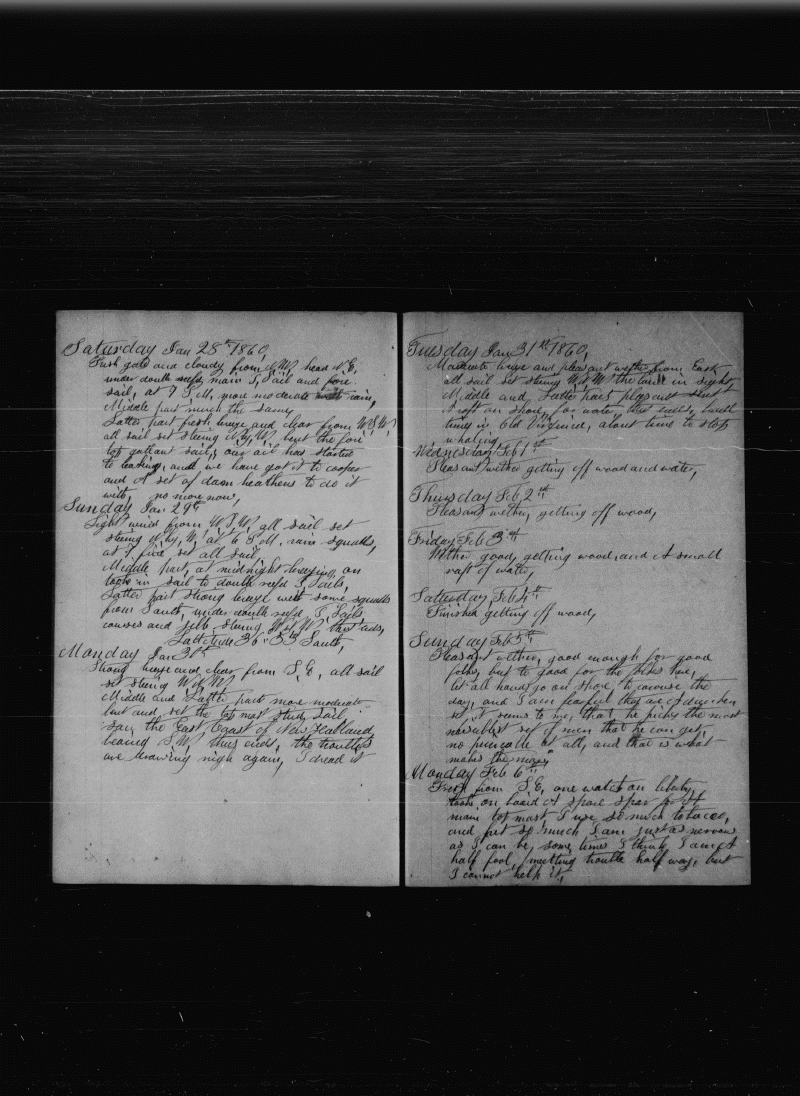 Saturday Jan 28th 1860,
Fresh gale and cloudy from N.W. head N.E.
under double reefd main T, Sail and fore
sail, at 7 P.M. more moderate with rain,
Middle part much the same,
Latter part fresh breeze and clear from W.S.W.
all sail set steering N by W, but the fore
top gallant sail, our oil has started
to leaking, and we have got it to cooper
and A set of dam heathens to do it
with, no more now,
Sunday Jan 29th
Light wind from W.S.W. all sail set
steering N by W, at 6 P.M. rain squalls,
at 7 fine set all sail
Middle part, at midnight breezing on
took in sail to double reefd T, Sails,
Latter part strong breeze with some squalls
from South, under double reefd T, Sails
courses and jibb, steering thus ends,
Lattetude 36-03 South,
Monday Jan 30th
Strong breeze and clear from S.E, all sail
set steing
Middle and Latter part more moderate
but and, set the top mast studg sail,
saw the East Coast of New Zealand,
bearing S.W. thus ends, the troubles
are drawing nigh again, I dread it
Tuesday Jan 31st 1860,
Moderate breeze and pleasant wether from East
all sail set steing the land in sight,
Middle and, Latter parts pleasant
A raft on shore, for water, dull
times in Old Virginia, about time to stop
whaling
Wednesday Feb 1st
Pleasant wether getting off wood and water,
Thursday Feb 2nd
Pleasant wether, getting off wood,
Friday Feb 3rd
Wether good, getting wood, and A small
raft of water,
Saturday Feb 4th
Finished getting off wood,
Sunday Feb 5th
Pleasant wether, good enough for good
folks, but to good for the here,
let all hands go on shore, to carouse the
day, and I am fearful they
it seems to me, that he picks the most
miserablest set of men that he can get,
no at all, and that is what
makes the
Monday Feb 6th
Fresh from S.E, one watch on liberty,
took on board A spare spar for A
main top mast, I use so much tobacco,
and fret so much I am just as nervous
as I can be, some times I think I am A
half fool, meetting trouble half way, but
I cannot help it,